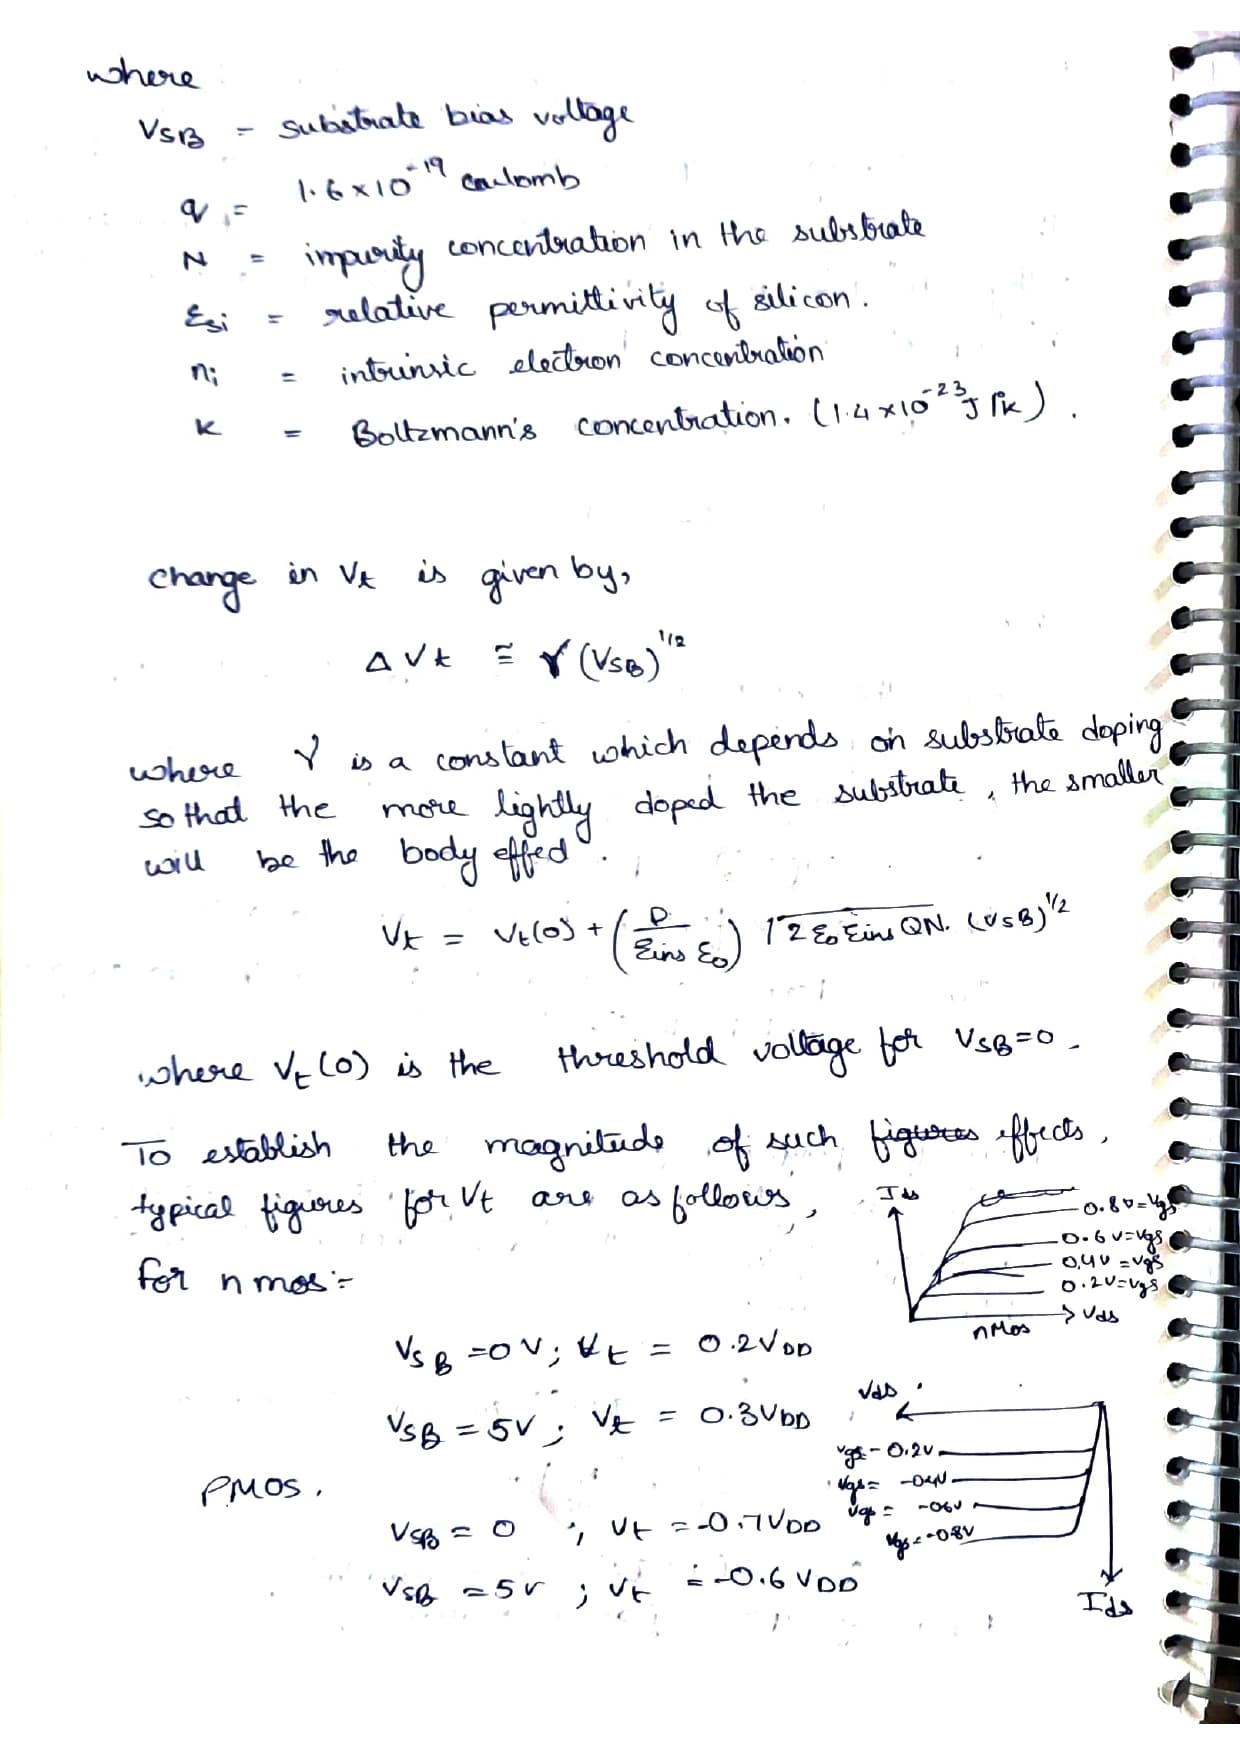 where
VSB = substrate bias voltage
q = 1.6×10⁻¹⁹ coulomb
N = impurity concentration in the substrate
Esi = relative permittivity of silicon.
ni = intrinsic electron concentration
k = Boltzmann's concentration. (1.4×10⁻²³ J/°k).
change in Vt is given by,
ΔVt ≅ γ(VSB)^1/2
where γ is a constant which depends on substrate doping
so that the more lightly doped the substrate, the smaller
will be the body effed.
Vt = Vt(0) + (D/Eins Eo) √2 Eo Eins QN. (VSB)^1/2
where Vt(0) is the threshold voltage for VSB=0.
To establish the magnitude of such figures effects,
typical figures for Vt are as follows,
Ids
0.8v=Vgs
0.6v=Vgs
0.4v=Vgs
0.2v=Vgs
Vds
nMos
for nmos:-
VSB=0V; Vt = 0.2VDD
VSB=5V; Vt = 0.3VDD
Vds
Vgs-0.2v
Vgs= -04V
Vgs= -06V
Vgs=-08V
Ids
PMOS.
VSB = 0 ; Vt = -0.7VDD
VSB = 5v ; Vt = -0.6 VDD